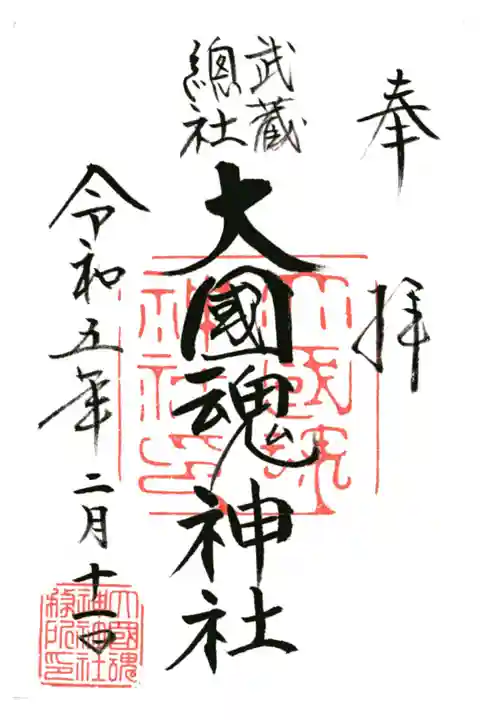 奉拝
武蔵
總社
大國魂神社
令和五年二月十一日
大國魂
神社印
大國魂
神社